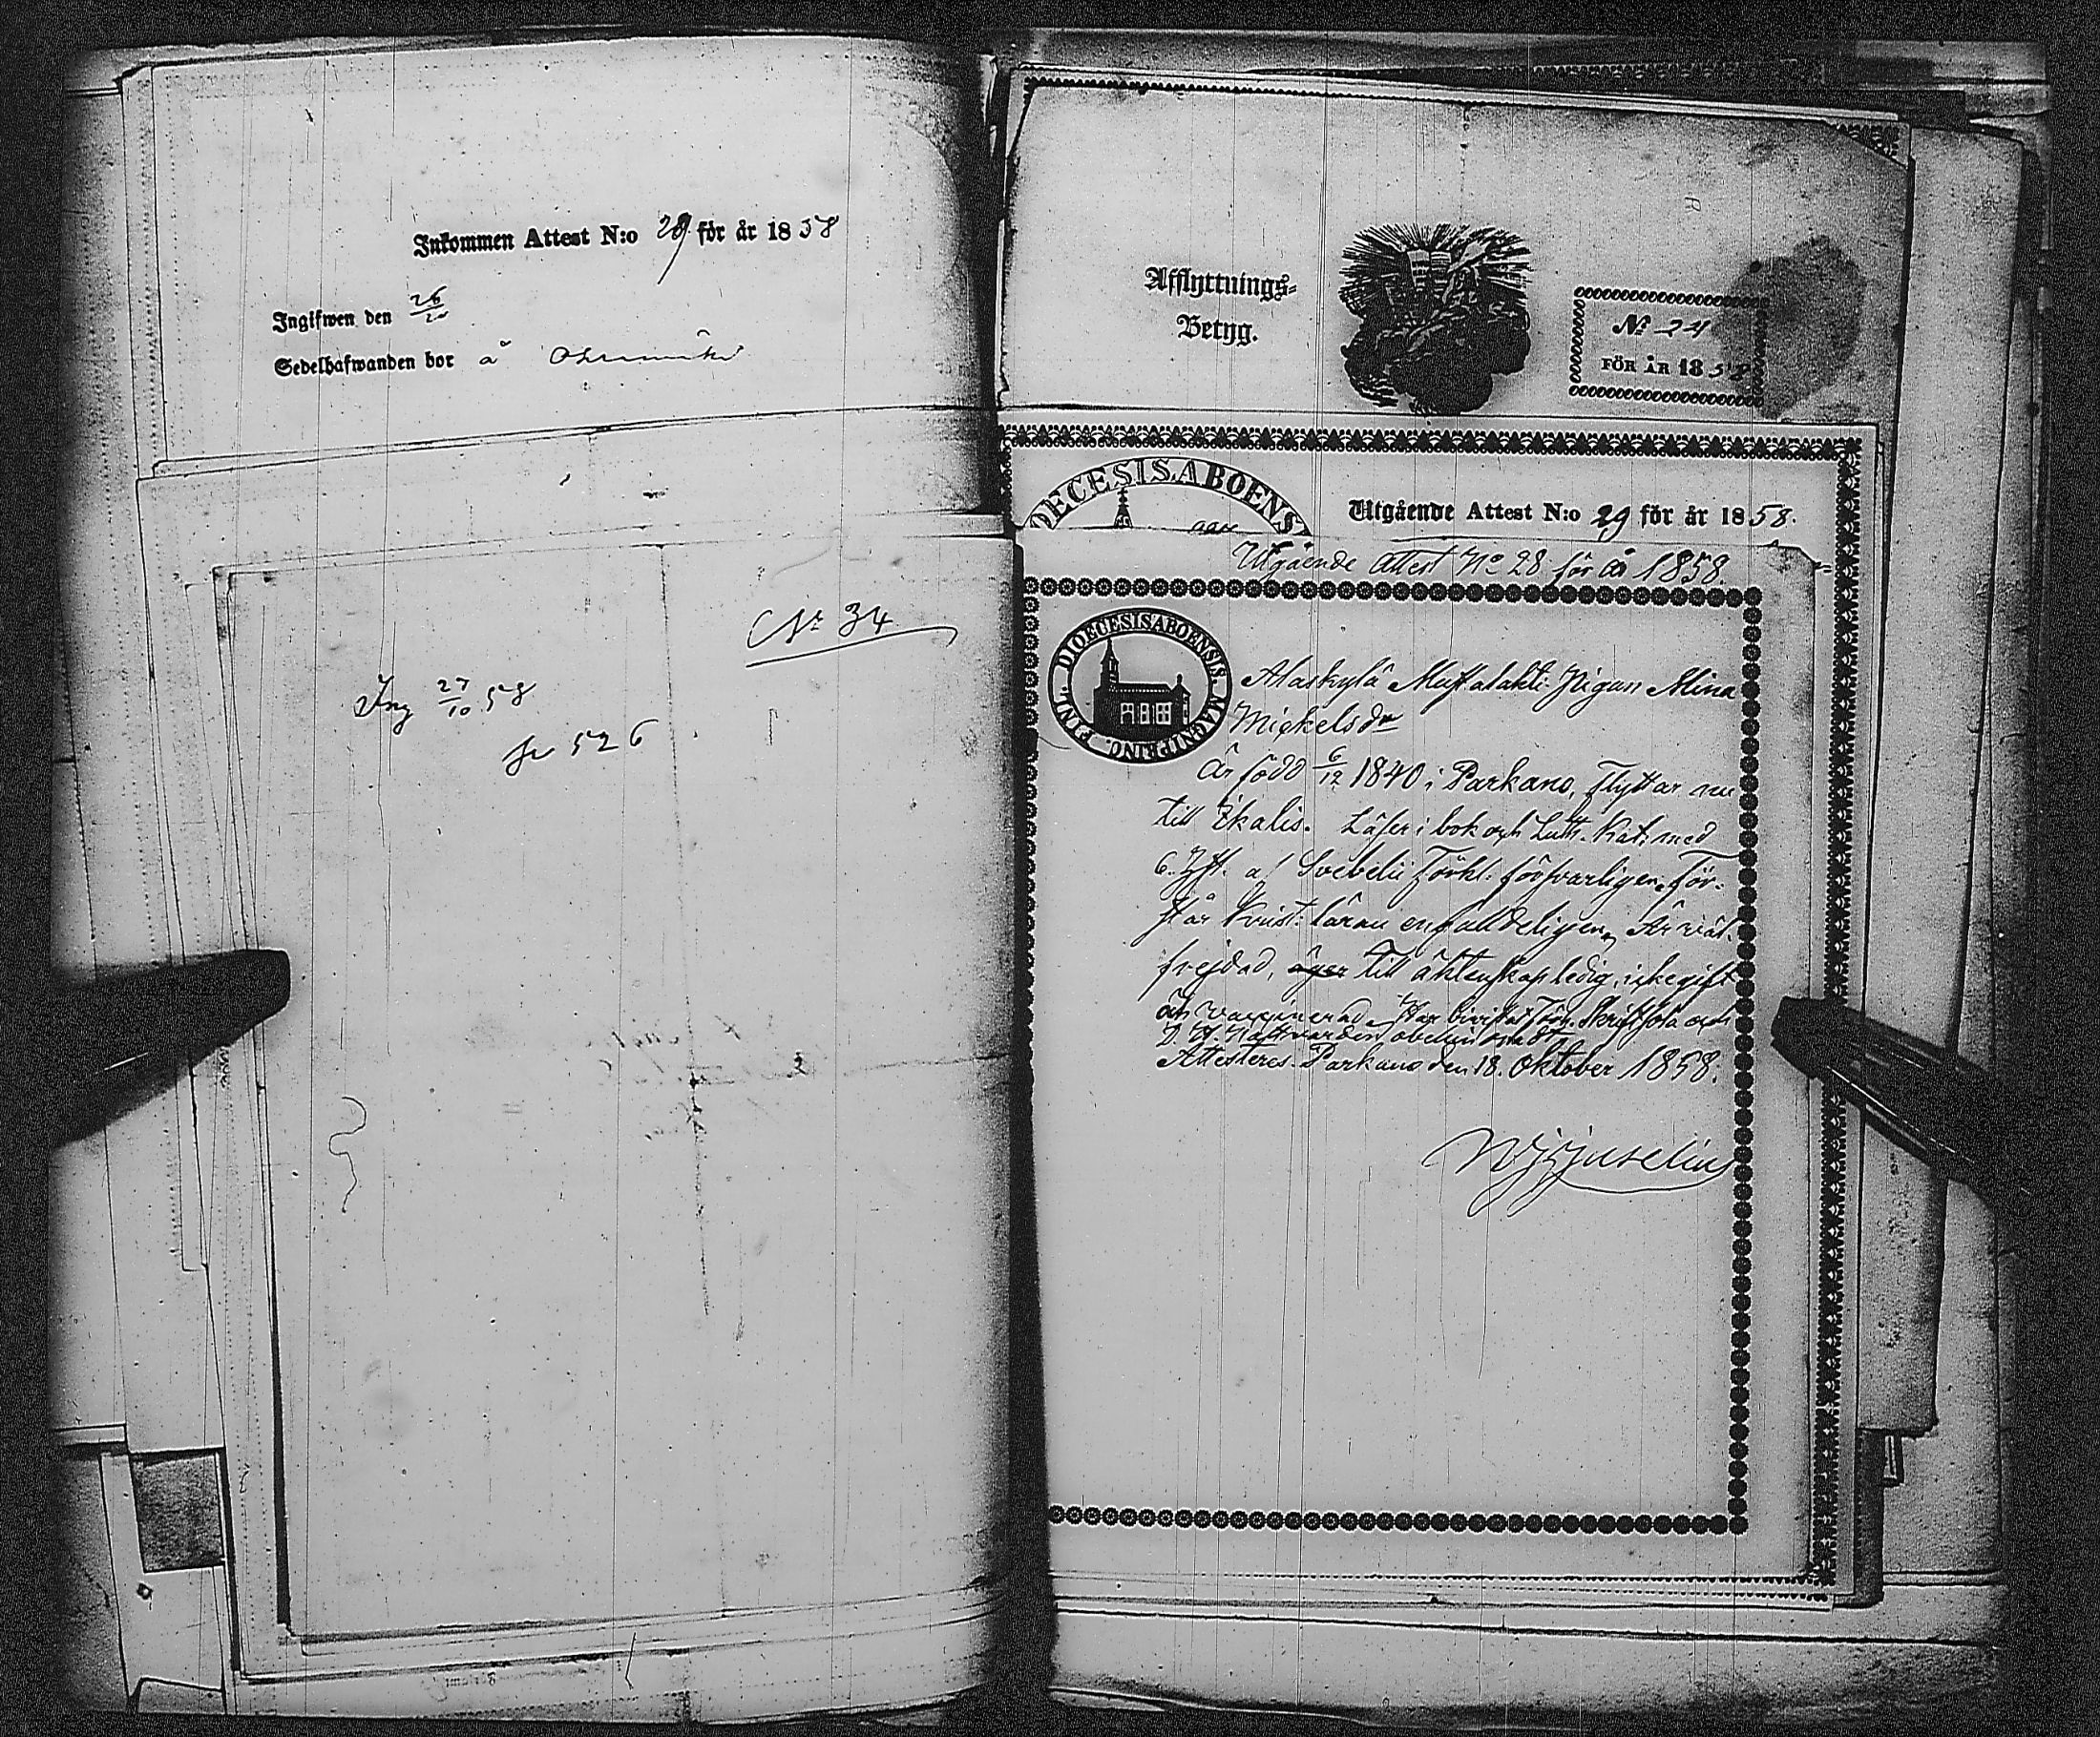 Inkommen Attest N:o 29 för år 1858
Ingifwen den 26/10
Sedelhafwanden bor å
No 34
Ing 27/10 58
526
Afflyttnings-
Betyg.
No 24
FÖR ÅR 1858
DIOECESIS ABOENSIS
Utgående Attest N:o 29 för år 1858.
Utgående Attest No 28 för år 1858.
DIOECESIS ABOENSIS. MAGNI PRINC. FINL.
Alaskylä Pigan Mina
Mickelsdr
är född 6/12 1840 i Parkano, flyttar nu
till Ikalis. Läser i bok och Luth. Kat: med
a/ Svebelii Förkl: försvarligen, för-
står Krist: läran enfalldeligen, Är väl-
frejdad, äger till äktenskap ledig, icke gift
och vaccinerad. Har bivistat Skriftskola och
H. H. Nattvarden
Attesteres. Parkano den 18. Oktober 1858.
Juselius